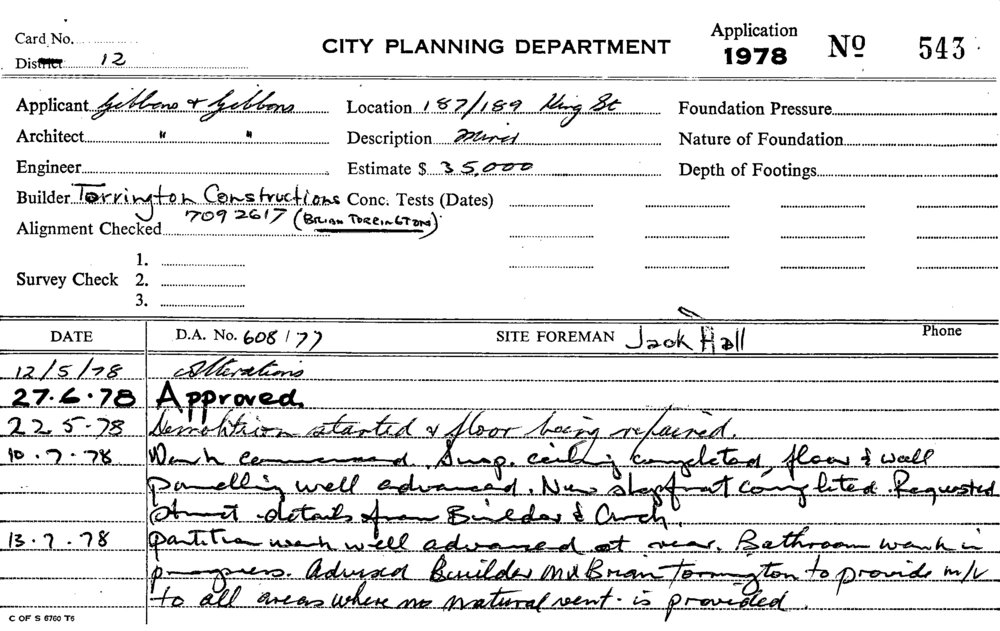 Card No.
CITY PLANNING DEPARTMENT
Application
1978
Nº 543
District 12
Applicant Gibbons & Gibbons
Location 187/189 King St
Foundation Pressure
Architect " "
Description
Nature of Foundation
Engineer
Estimate $ 35,000
Depth of Footings
Builder Torrington Constructions
Conc. Tests (Dates)
7092617 (BRIAN TORRINGTON)
Alignment Checked
1.
Survey Check 2.
3.
DATE
D.A. No. 608/77
SITE FOREMAN Jack Hall
Phone
12/5/78 Alterations
27.6.78 Approved.
22 5-78 Demolition started & floor being repaired.
10.7.78 Work commenced. Susp. ceiling completed, floor & wall
panelling well advanced. New shopfront completed. Requested
struct details from Builder & Arch.
13.7.78 partition work well advanced at rear. Bathroom work in
progress. Advised Builder Mr Brian Torrington to provide m/v
to all areas where no natural vent. is provided.
C OF S 6760 T6